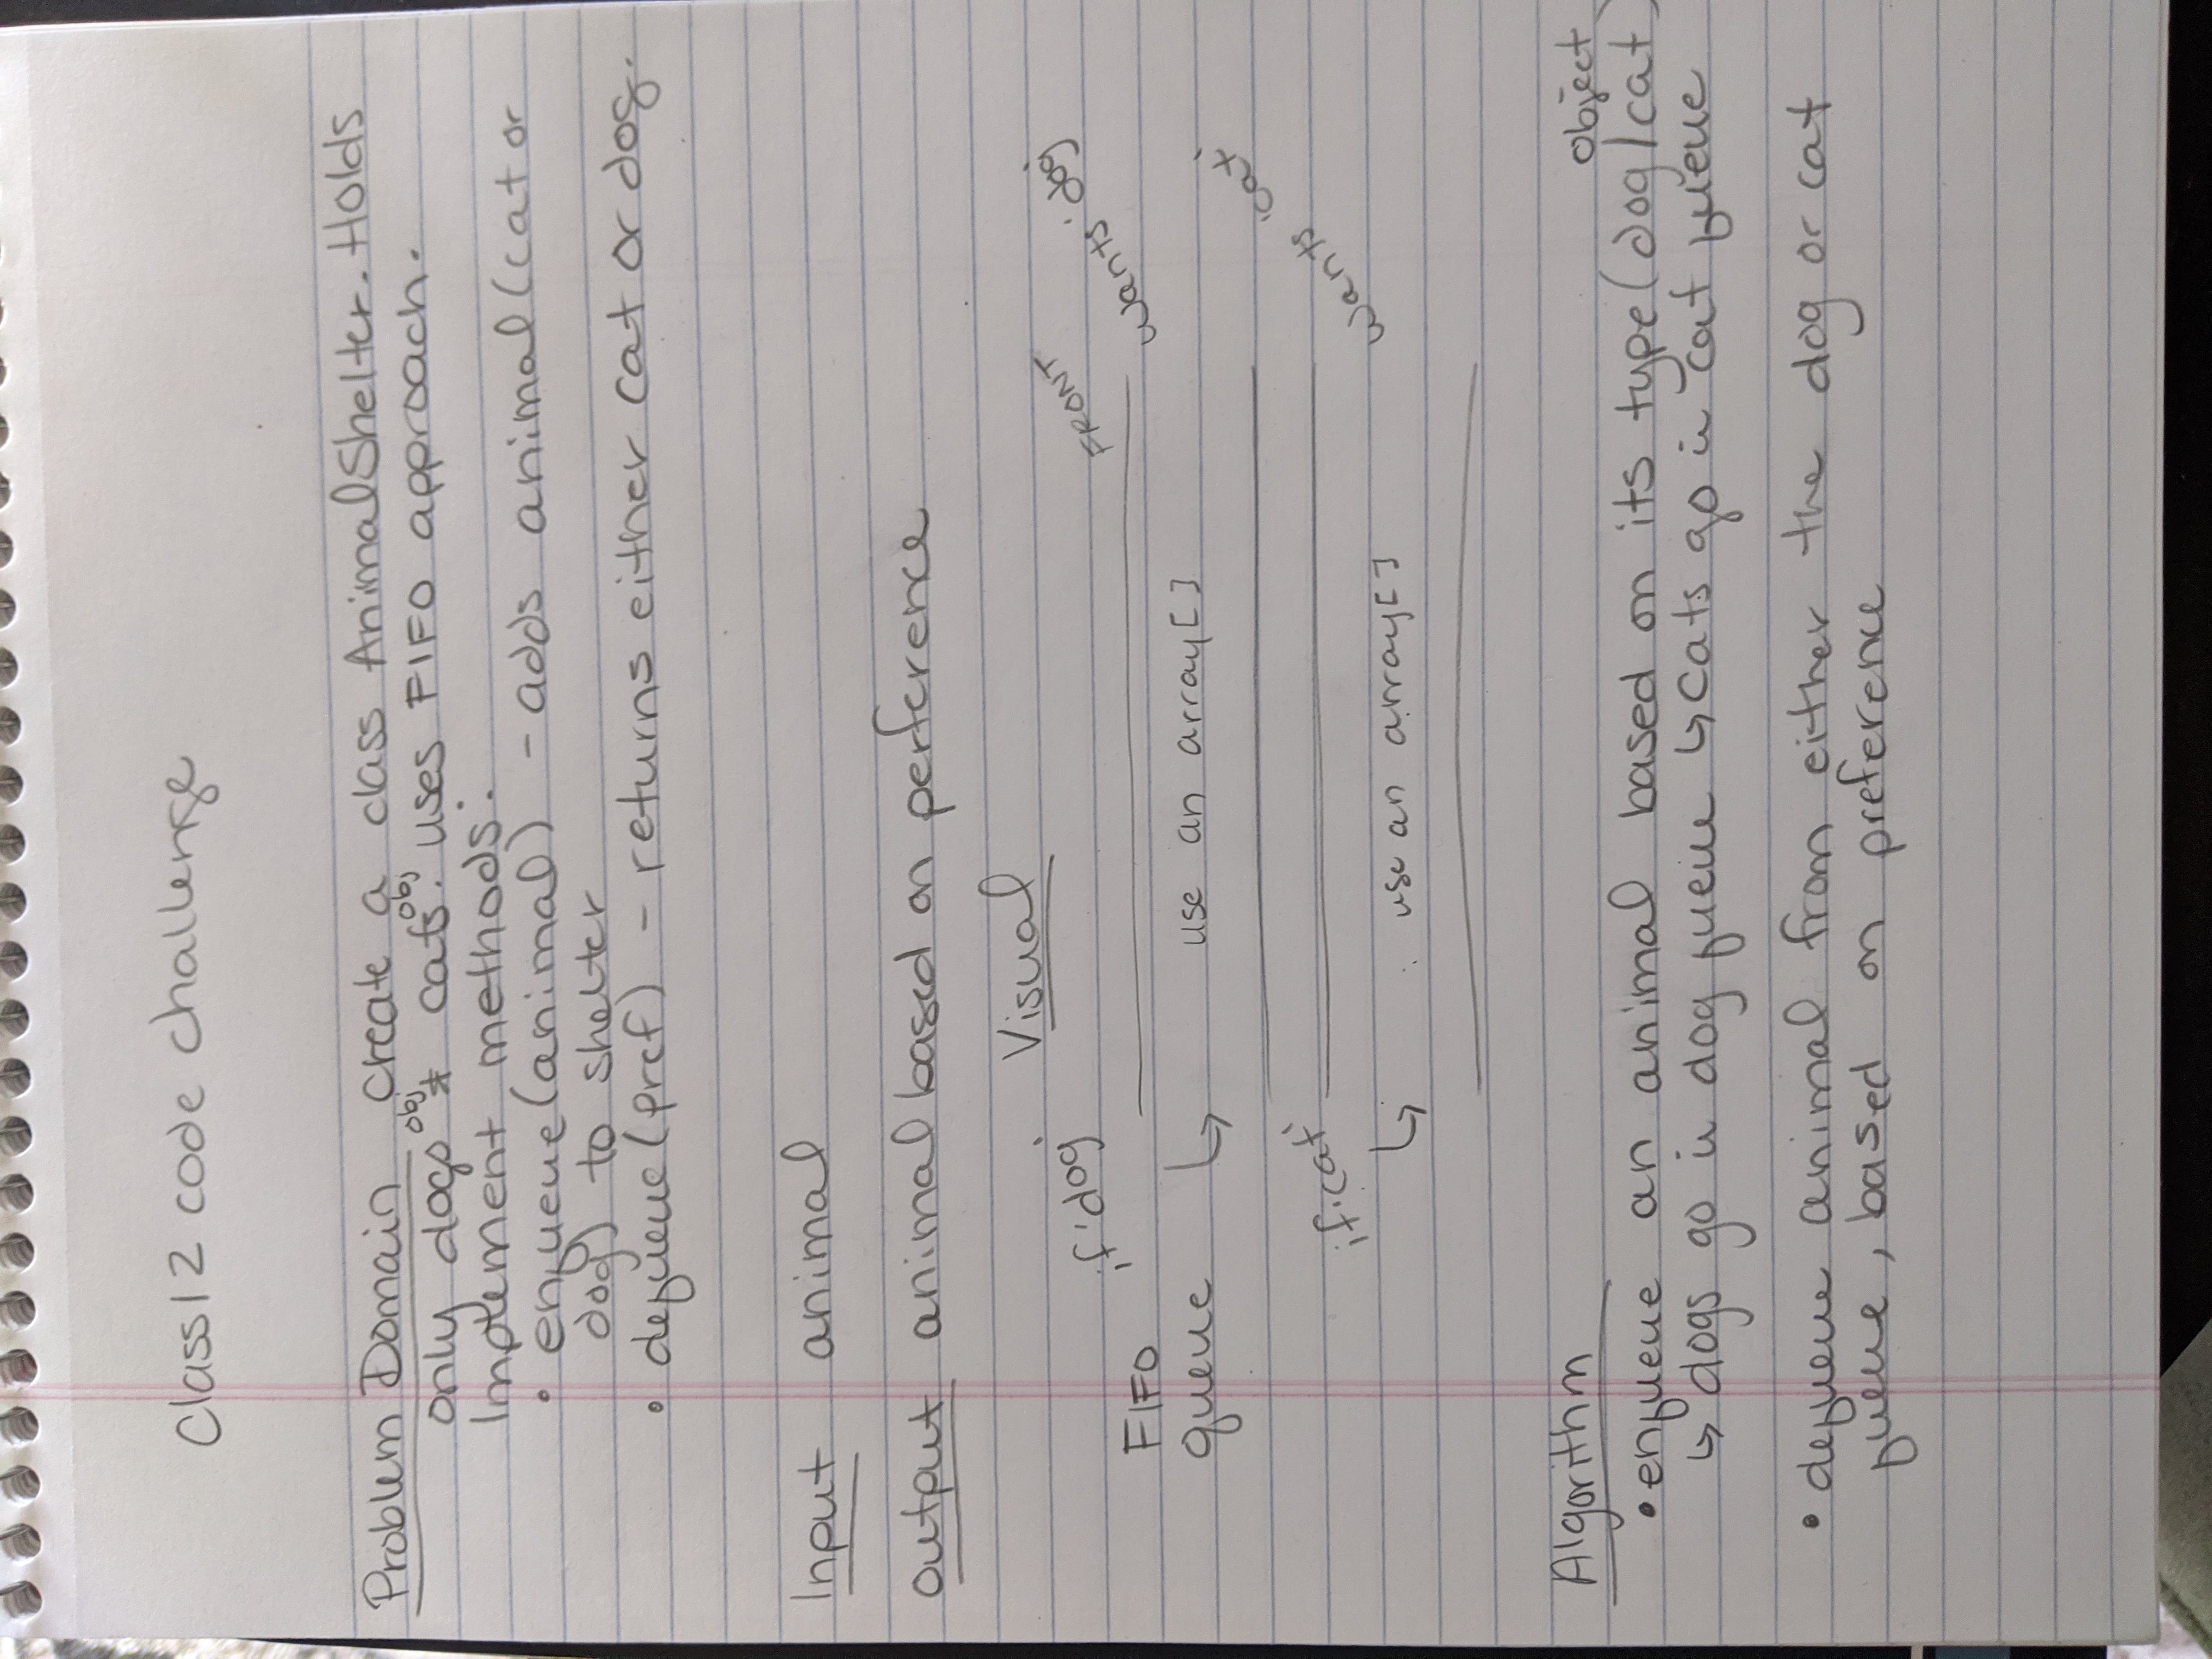 Class 12 code challenge
Problem Domain create a class AnimalShelter. Holds
only dogs obj & cats obj. uses FIFO approach.
Implement methods:
• enqueue(animal) - adds animal (cat or
dog) to shelter
• dequeue(pref) - returns either cat or dog.
Input animal
Output animal based on perference
Visual
if 'dog'
FRONT
wants 'dog'
FIFO
queue ↳ use an array[]
if 'cat'
wants 'cat'
↳ use an array[]
Algorithm
object
• enqueue an animal based on its type (dog/cat)
↳ dogs go in dog queue ↳ cats go in cat queue
• dequeue animal from either the dog or cat
queue, based on preference